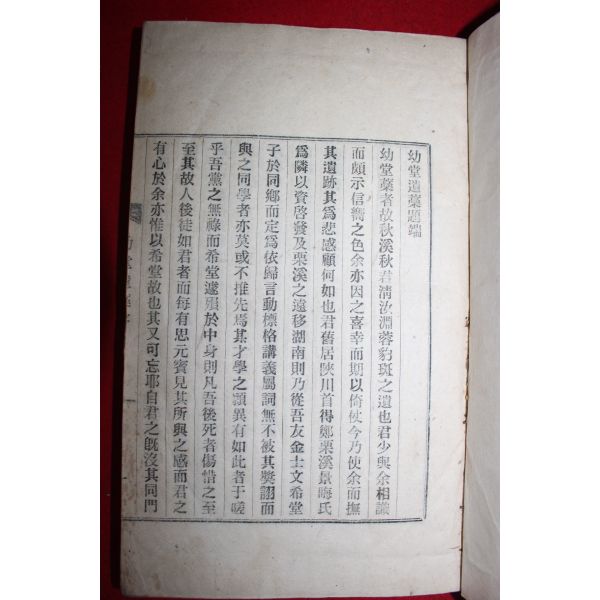 幼堂遺藁題端
幼堂藁者故秋溪秋君淸汝淵蓉豹斑之遺也君少與余相識
而頗示信嚮之色余亦因之喜幸而期以倚仗今乃使余而撫
其遺跡其爲悲感顧何如也君舊居陜川首得鄭栗溪景晦氏
爲隣以資啓發及栗溪之遠移湖南則乃從吾友金士文希堂
子於同鄕而定爲依歸言動標格講義屬詞無不被其奬詡而
與之同學者亦莫或不推先焉其才學之頴異有如此者于嗟
乎吾黨之無祿而希堂遽殞於中身則凡吾後死者傷惜之至
至其故人後徒如君者而每有思元賓見其所與之感而君之
有心於余亦惟以希堂故也其又可忘耶自君之旣沒其同門